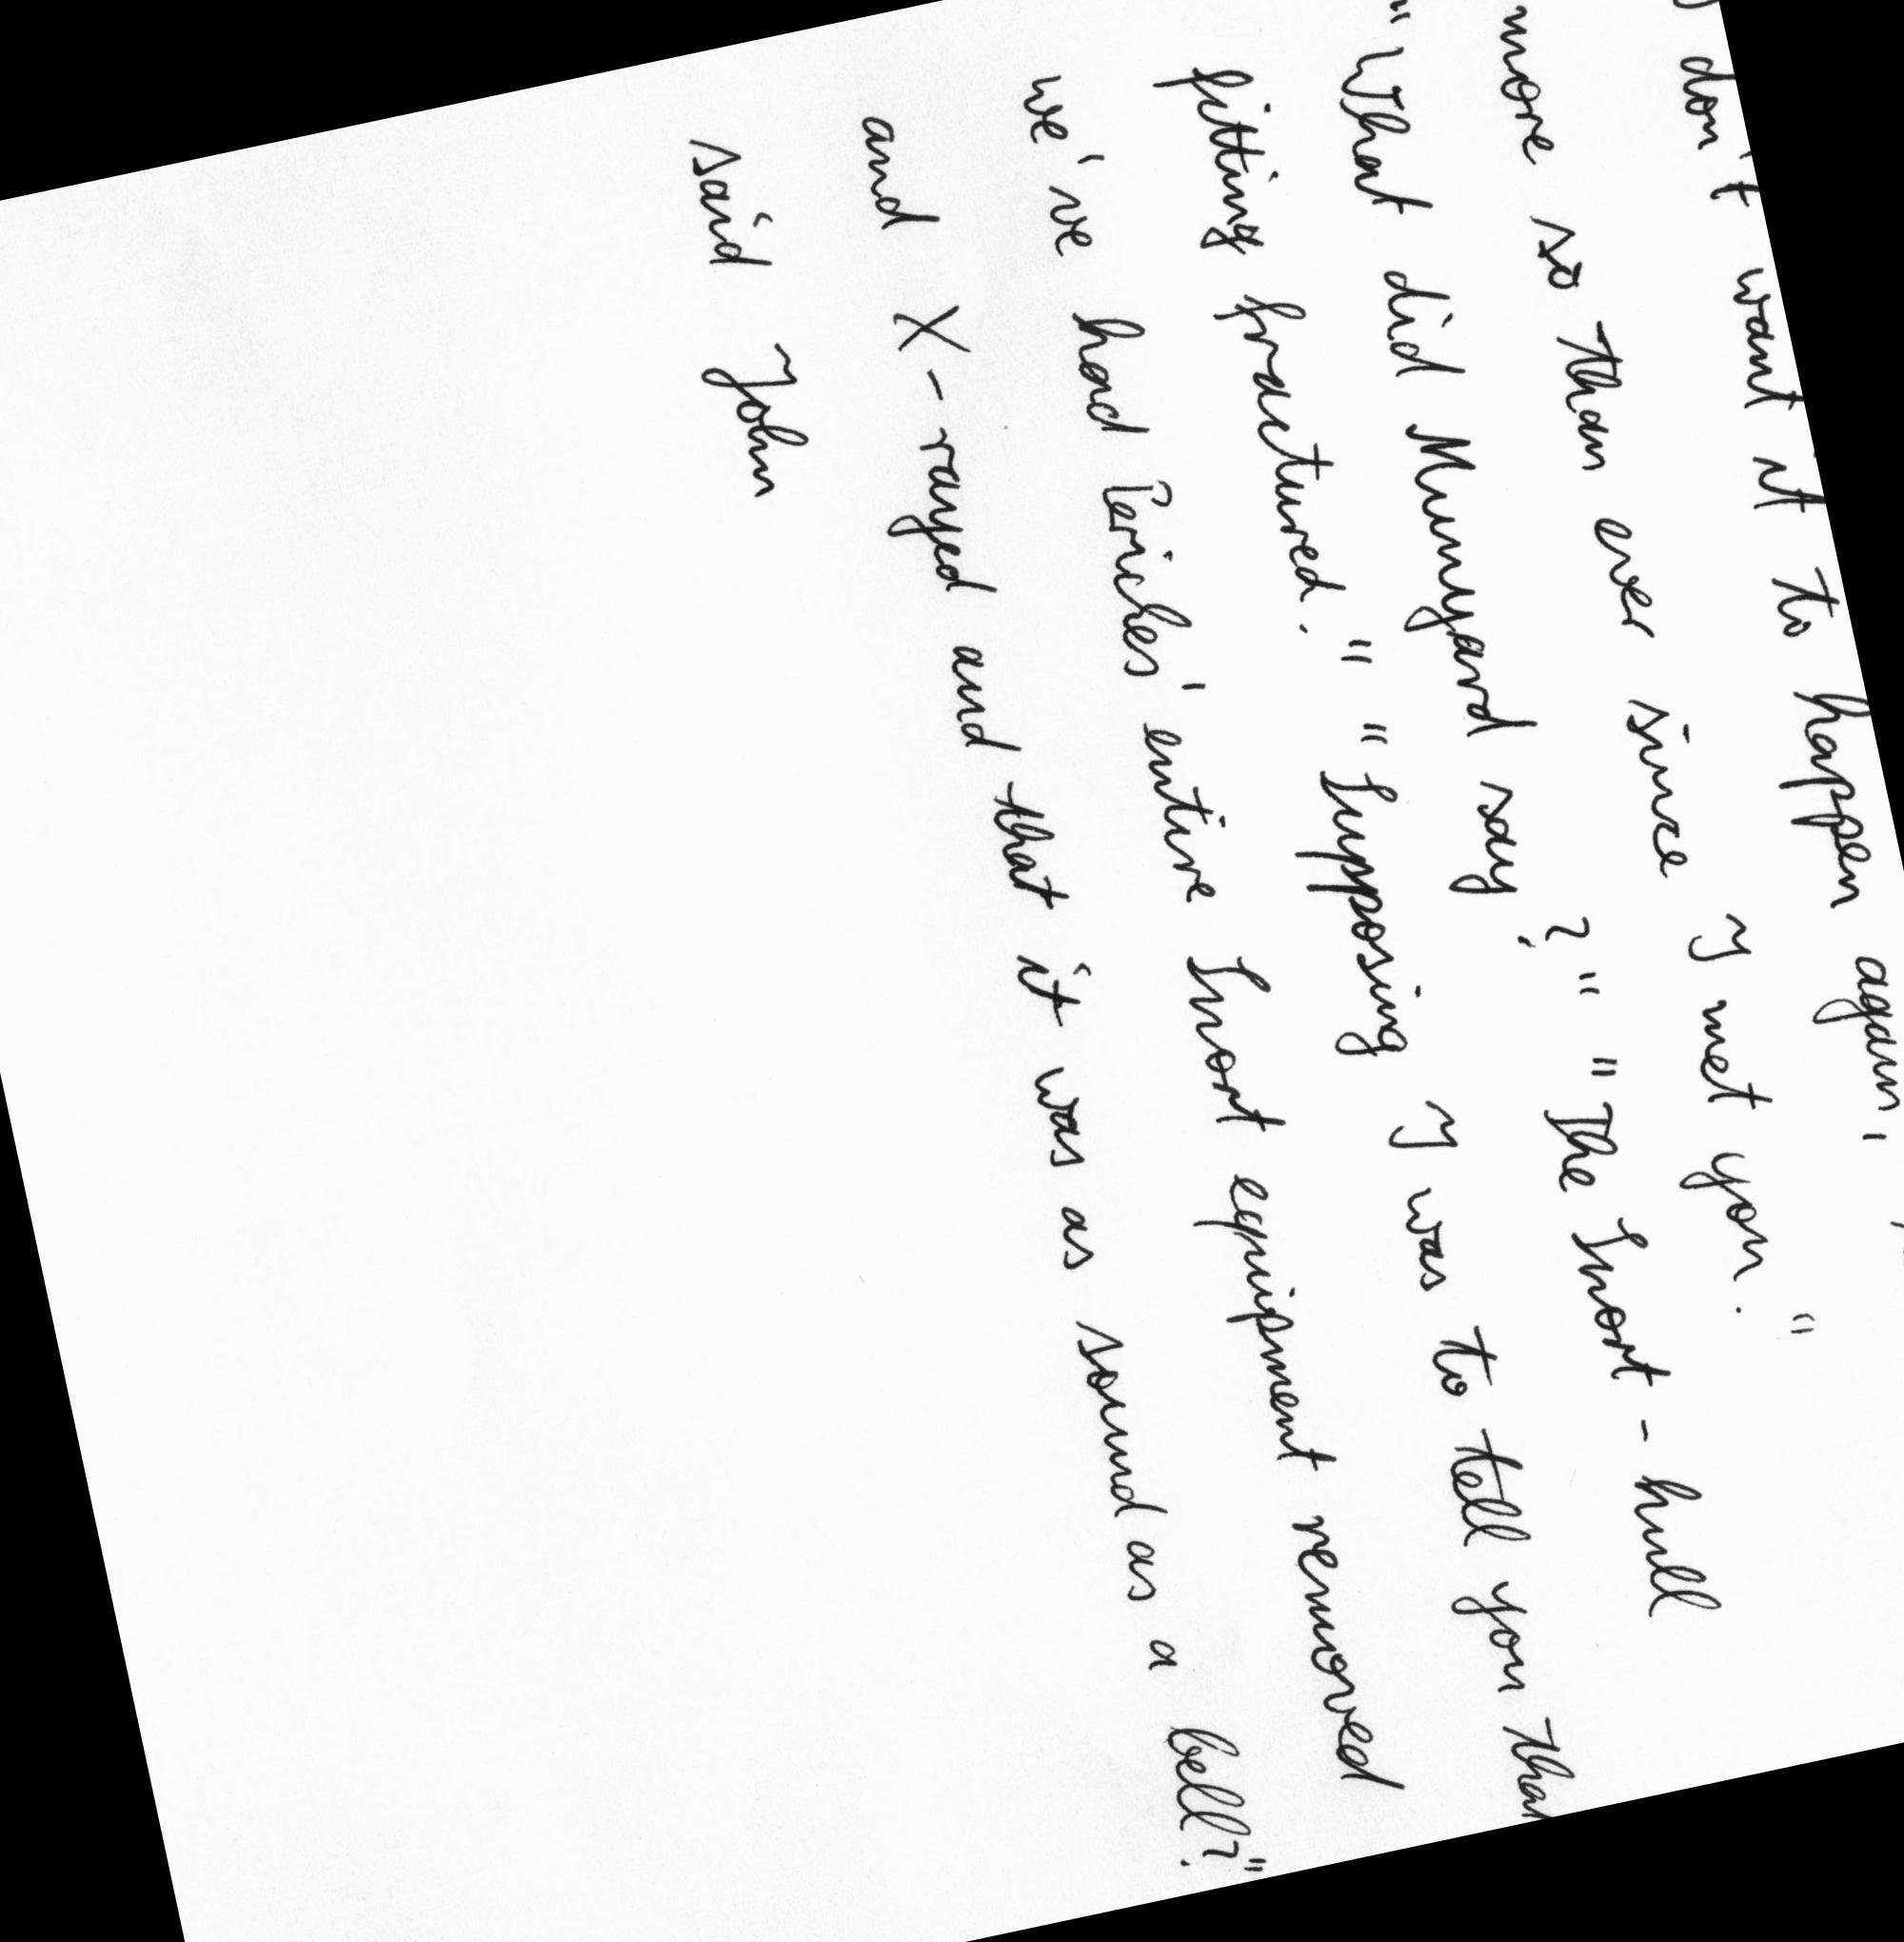 don't want it to happen again,
more so than ever since I met you."
"What did Munyard say?" "The Snort-hull
fitting fractured." "Supposing I was to tell you tha
we've had Pericles' entire Snort equipment removed
and X-rayed and that it was as sound as a bell?"
said John